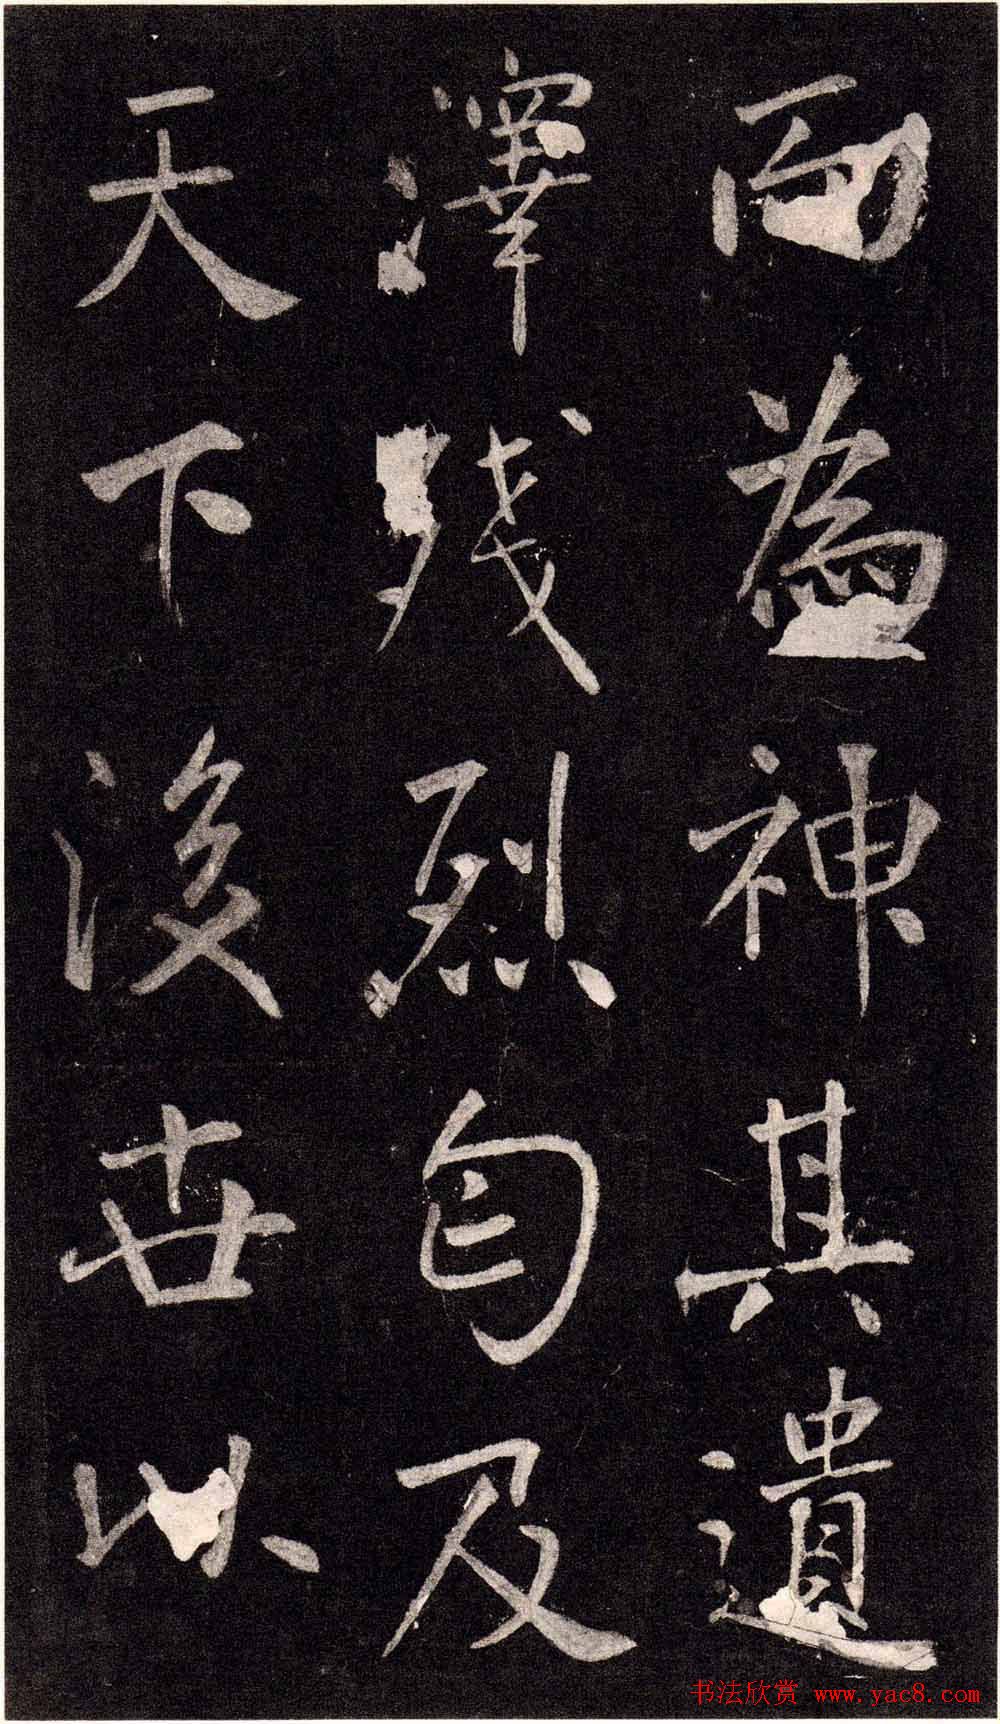 而為神其遺
澤殘烈匄及
天下後世以
书法欣赏 www.yac8.com